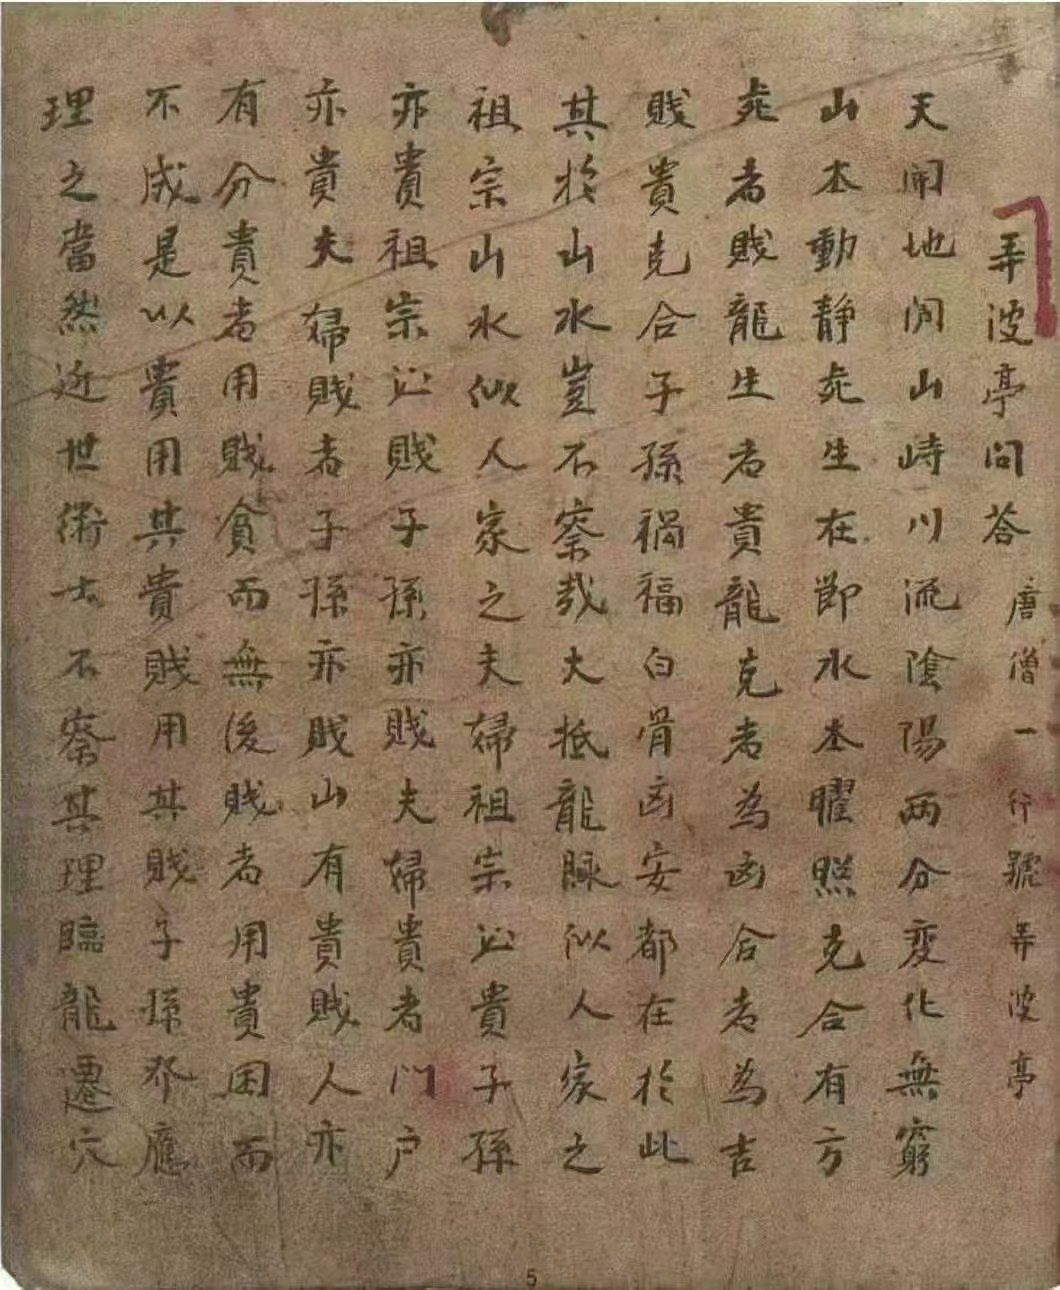 弄波亭問答 唐僧一行號弄波亭
天開地闢山峙川流陰陽兩分變化無窮
山本動静死生在節水本曜照克合有方
死者賤龍生者貴龍克者為凶合者為吉
賤貴克合子孫禍福白骨凶安都在於此
其於山水豈不察哉大抵龍脉似人家之
祖宗山水似人家之夫婦祖宗必貴子孫
亦貴祖宗必賤子孫亦賤夫婦貴者門户
亦貴夫婦賤者子孫亦賤山有貴賤人亦
有分貴者用賤貧而無後賤者用貴困而
不成是以貴用其貴賤用其賤子孫必應
理之當然近世術士不察其理臨龍遷穴
5